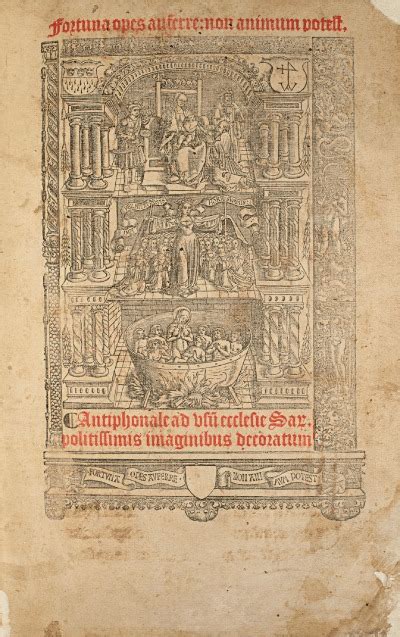 Fortuna opes auferre: non animum potest.
¶Antiphonale ad vsū ecclesie Sar.
politissimis imaginibus decoratum
FORTVNA OPES AVFERRE NON ANI MVM POTEST